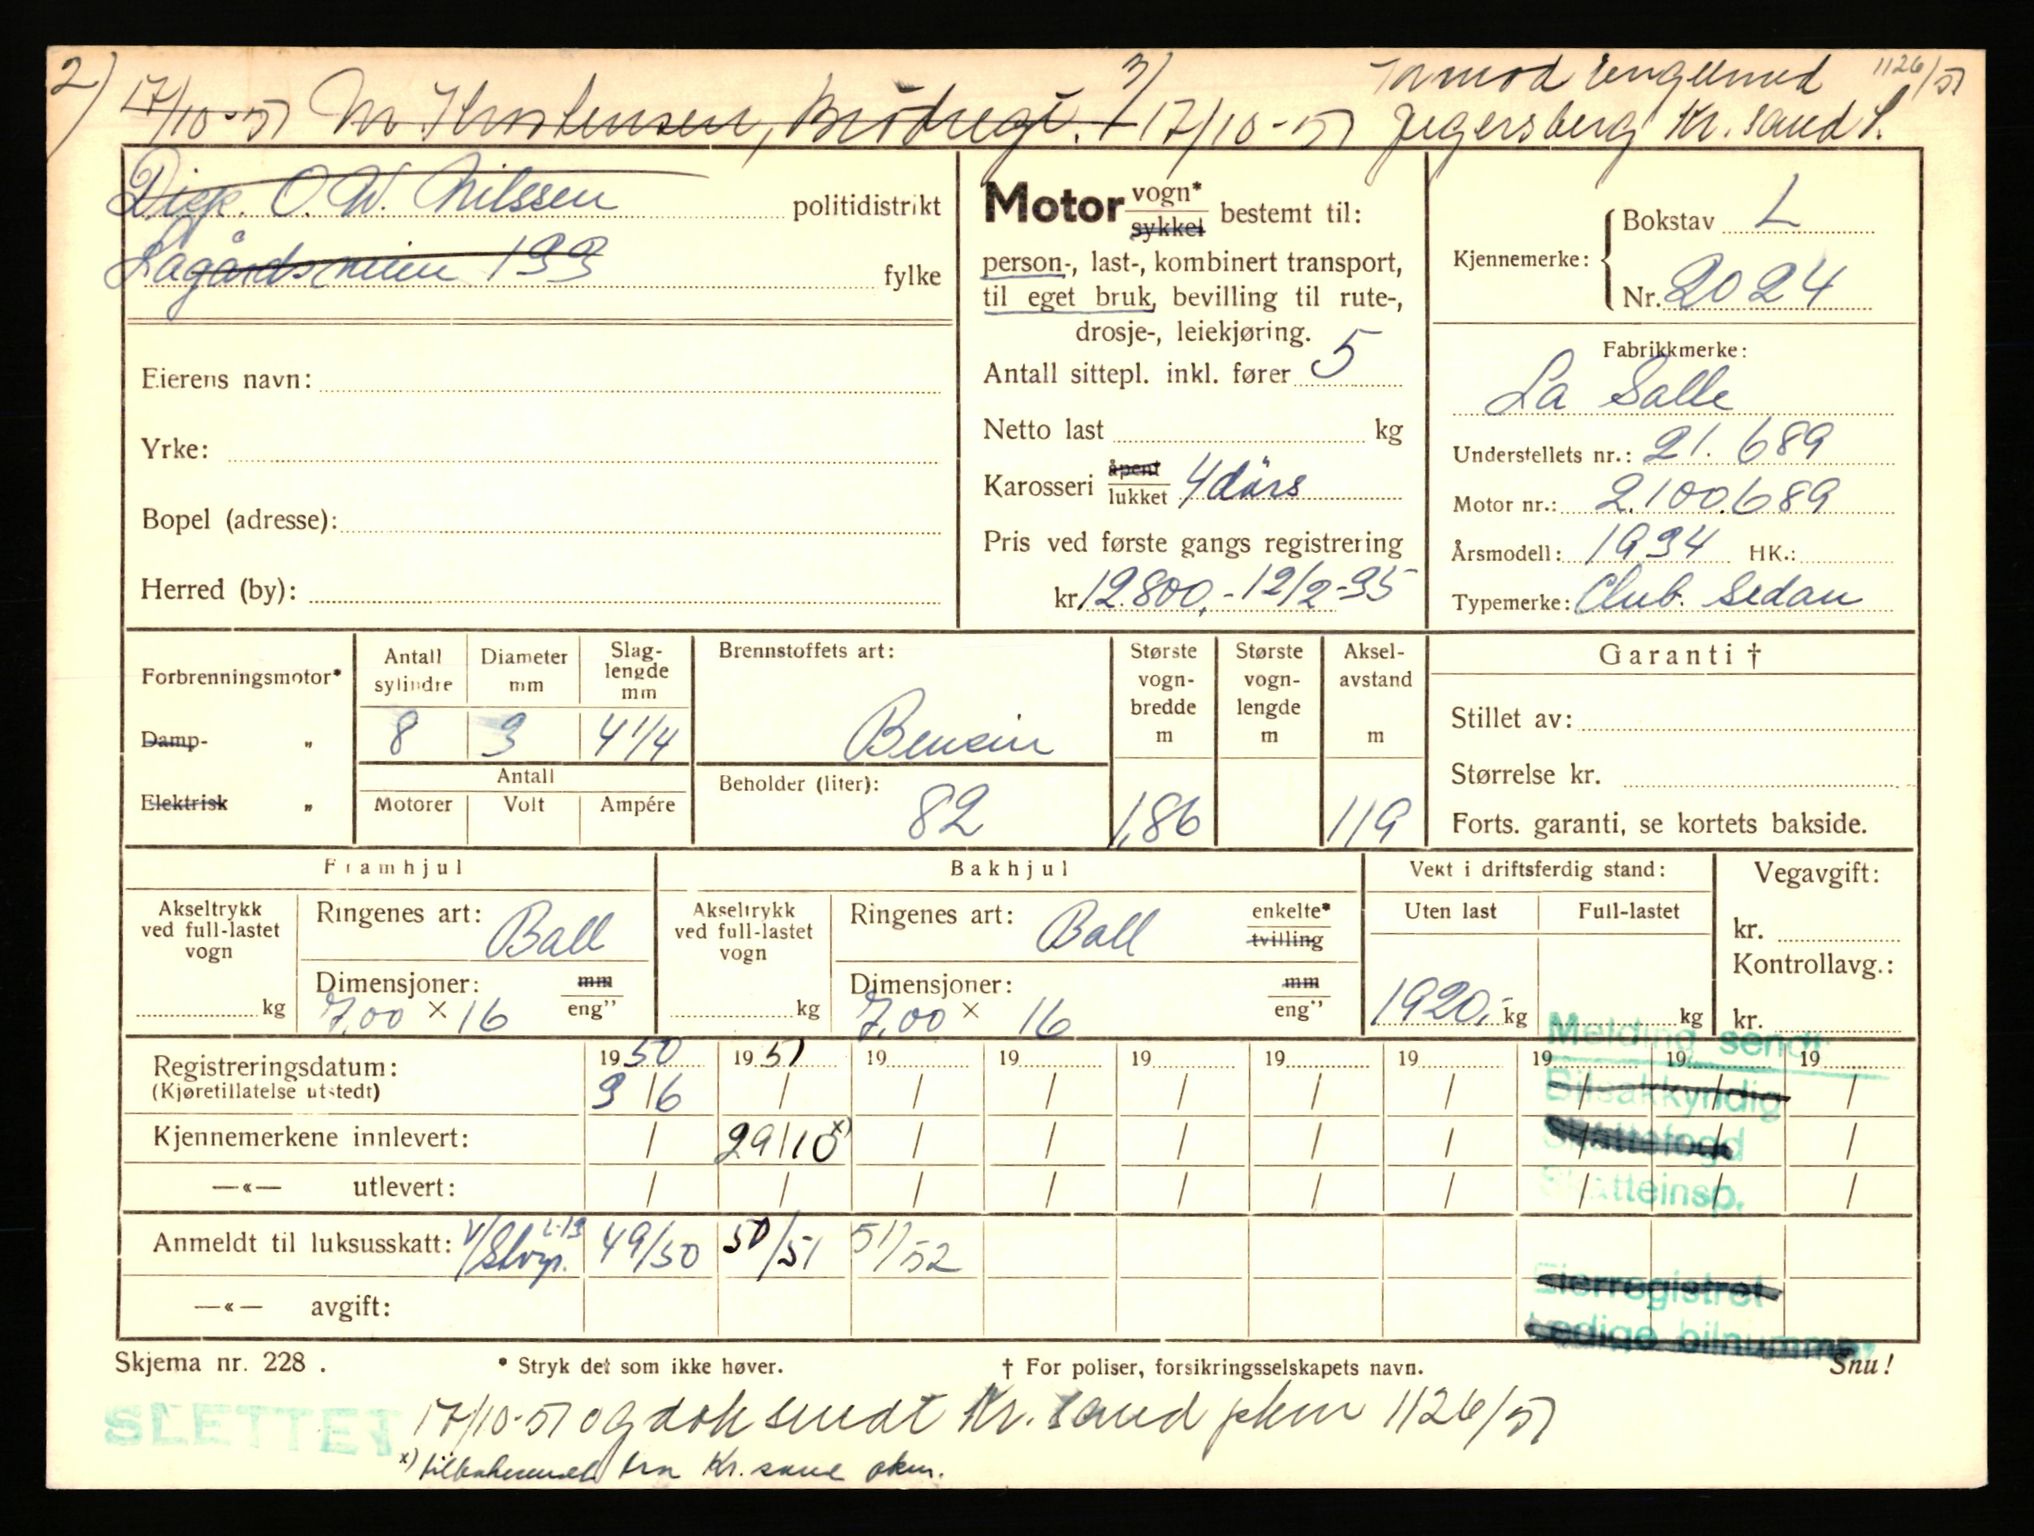 2) 17/10-51 3) 17/10-51 1126/51
Jegersberg Kr. sand S.
Disp. O. W. Nilssen politidistrikt
Lagårdsveien 133 fylke
Eierens navn:
Yrke:
Bopel (adresse):
Herred (by):
Motor vogn* sykkel bestemt til:
person-, last-, kombinert transport,
til eget bruk, bevilling til rute-,
drosje-, leiekjøring.
Antall sittepl. inkl. fører 5
Netto last kg
Karosseri åpent lukket 4 dørs
Pris ved første gangs registrering
kr. 12.800,- 12/2-35
Kjennemerke: Bokstav L
Nr. 2024
Fabrikkmerke:
La Salle
Understellets nr.: 21.689
Motor nr.: 2.100.689
Årsmodell: 1934 HK.:
Typemerke: Club. Sedan
Forbrenningsmotor*
Damp- „
Elektrisk „
Antall sylindre 8
Diameter mm 3
Slag-lengde mm 4 1/4
Antall
Motorer Volt Ampére
Brennstoffets art:
Bensin
Beholder (liter):
82
Største vogn-bredde m 1,86
Største vogn-lengde m
Aksel-avstand m 119
Garanti †
Stillet av:
Størrelse kr.
Forts. garanti, se kortets bakside.
Framhjul
Akseltrykk ved full-lastet vogn kg
Ringenes art: Ball
Dimensjoner: mm eng”
7,00 × 16
Bakhjul
Akseltrykk ved full-lastet vogn kg
Ringenes art: Ball enkelte* tvilling
Dimensjoner: mm eng”
7,00 × 16
Vekt i driftsferdig stand:
Uten last Full-lastet
1920,- kg kg
Vegavgift:
kr.
Kontrollavg.:
kr.
Melding sendt
Registreringsdatum: 1950 1951 19 19 19 19 19 19 19 19
(Kjøretillatelse utstedt) 3/6 / / / / / / / / /
Bilsakkyndig
Kjennemerkene innlevert: / 29/10 x) / / / / / / / /
Skattefogd
—«— utlevert: / / / / / / / / / /
Skatteinsp.
Anmeldt til luksusskatt: 49/50 50/51 51/52
—«— avgift:
Eierregistret
Ledige bilnummer
Skjema nr. 228 . * Stryk det som ikke høver. † For poliser, forsikringsselskapets navn. Snu!
SLETTET 17/10-51 og dok sendt Kr. sand pkm 1126/51
x) fra Kr. sand pkm.